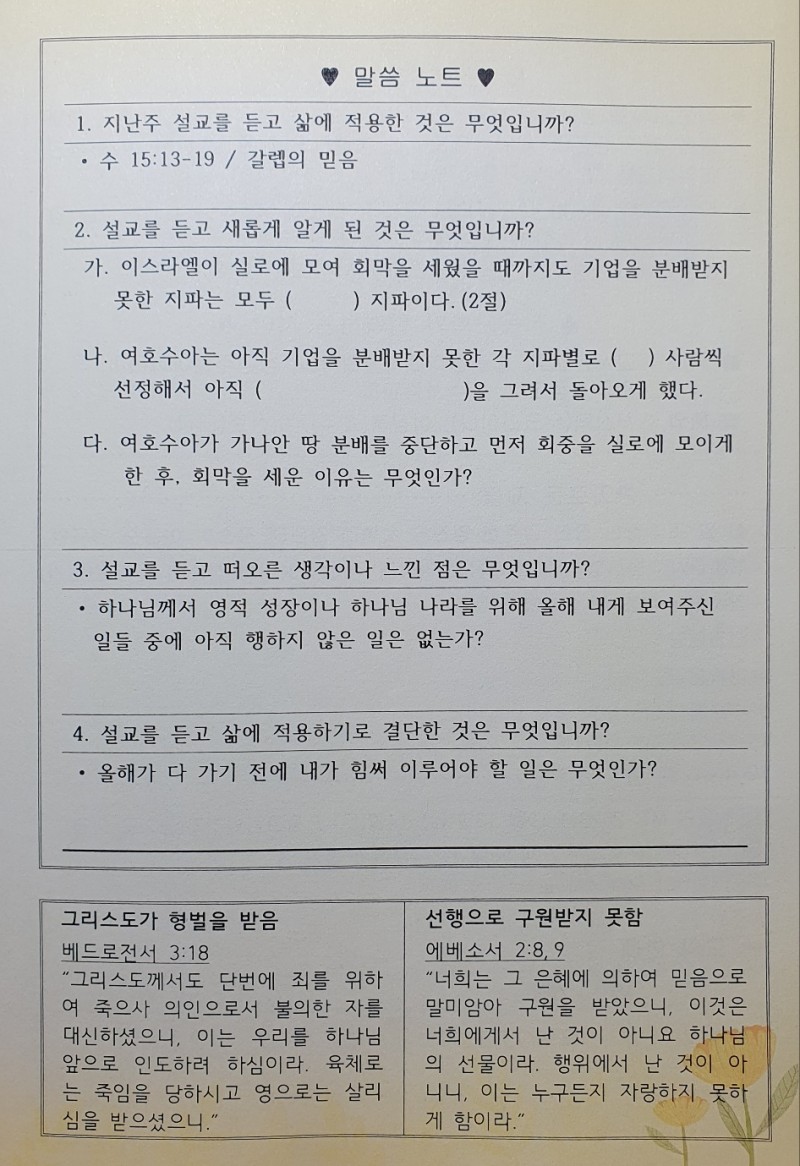 ♥ 말씀 노트 ♥
1. 지난주 설교를 듣고 삶에 적용한 것은 무엇입니까?
• 수 15:13-19 / 갈렙의 믿음
2. 설교를 듣고 새롭게 알게 된 것은 무엇입니까?
가. 이스라엘이 실로에 모여 회막을 세웠을 때까지도 기업을 분배받지
못한 지파는 모두 (        ) 지파이다. (2절)
나. 여호수아는 아직 기업을 분배받지 못한 각 지파별로 (    ) 사람씩
선정해서 아직 (                        )을 그려서 돌아오게 했다.
다. 여호수아가 가나안 땅 분배를 중단하고 먼저 회중을 실로에 모이게
한 후, 회막을 세운 이유는 무엇인가?
3. 설교를 듣고 떠오른 생각이나 느낀 점은 무엇입니까?
• 하나님께서 영적 성장이나 하나님 나라를 위해 올해 내게 보여주신
일들 중에 아직 행하지 않은 일은 없는가?
4. 설교를 듣고 삶에 적용하기로 결단한 것은 무엇입니까?
• 올해가 다 가기 전에 내가 힘써 이루어야 할 일은 무엇인가?
그리스도가 형벌을 받음
베드로전서 3:18
“그리스도께서도 단번에 죄를 위하
여 죽으사 의인으로서 불의한 자를
대신하셨으니, 이는 우리를 하나님
앞으로 인도하려 하심이라. 육체로
는 죽임을 당하시고 영으로는 살리
심을 받으셨으니.”
선행으로 구원받지 못함
에베소서 2:8, 9
“너희는 그 은혜에 의하여 믿음으로
말미암아 구원을 받았으니, 이것은
너희에게서 난 것이 아니요 하나님
의 선물이라. 행위에서 난 것이 아
니니, 이는 누구든지 자랑하지 못하
게 함이라.”